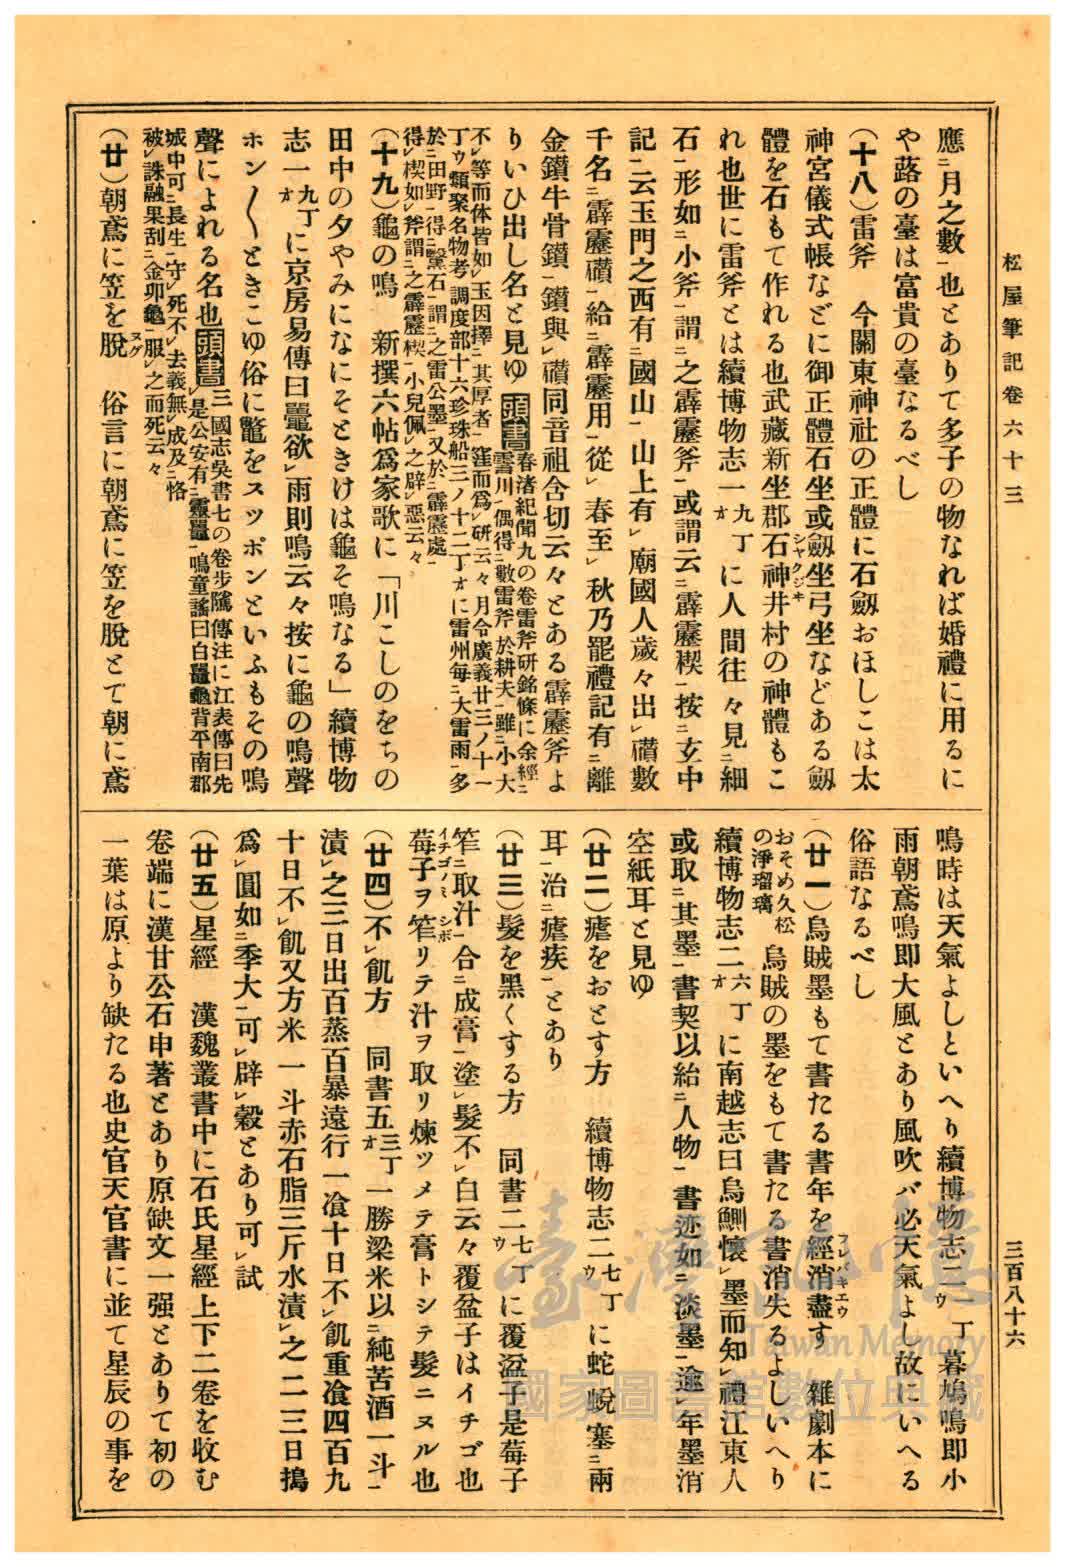 松屋筆記卷六十三
三百八十六
應ニ月之數一也とありて多子の物なれば婚禮に用るに
や蕗の臺は富貴の臺なるべし
(十八)雷斧　今關東神社の正體に石劔おほしこは太
神宮儀式帳などに御正體石坐或劔坐弓坐などある劔
體を石もて作れる也武藏新坐郡石神井シヤクジキ村の神體もこ
れ也世に雷斧とは續博物志一九丁オに人間往々見ニ細
石一形如ニ小斧一謂ニ之霹靂斧一或謂云ニ霹靂楔一按ニ玄中
記一云玉門之西有ニ國山一山上有レ廟國人歲々出レ礸數
千名ニ霹靂礸一給ニ霹靂用一從レ春至レ秋乃罷禮記有ニ離
金鑽牛骨鑽一鑽與レ礸同音祖含切云々とある霹靂斧よ
りいひ出し名と見ゆ頭書春渚紀聞九の卷雷斧研銘條に余經ニ
霅川一偶得ニ數雷斧於耕夫一雖ニ小大
不レ等而体皆如レ玉因擇ニ其厚者一窪而爲レ研云々月令廣義廿三ノ十一
丁ウ類聚名物考調度部十六珍珠船三ノ十二丁オに雷州每ニ大雷雨一多
於ニ田野一得ニ黳石一謂ニ之雷公墨一又於ニ霹靂處一
得レ楔如レ斧謂ニ之霹靂楔一小兒佩レ之辟レ惡云々
(十九)龜の鳴　新撰六帖爲家歌に「川こしのをちの
田中の夕やみになにそときけは龜そ鳴なる」續博物
志一九丁オに京房易傳曰鼉欲レ雨則鳴云々按に龜の鳴聲
ホン〱ときこゆ俗に鼈をスツポンといふもその鳴
聲によれる名也頭書三國志吳書七の卷步隲傳注に江表傳曰先
レ是公安有ニ靈鼉一鳴童謠曰白鼉龜背平南郡
城中可ニ長生一守レ死不レ去義無レ成及ニ恪
被レ誅融果刮ニ金印龜一服レ之而死云々
(廿)朝鳶に笠を脫ヌグ　俗言に朝鳶に笠を脫とて朝に鳶
鳴時は天氣よしといへり續博物志二一丁ウ暮鳩鳴即小
雨朝鳶鳴即大風とあり風吹バ必天氣よし故にいへる
俗語なるべし
(廿一)烏賊墨もて書たる書年を經消盡フレバキエウす　雜劇本に
おそめ久松の淨瑠璃　烏賊の墨をもて書たる書消失るよしいへり
續博物志二六丁オに南越志曰烏鰂懷レ墨而知レ禮江東人
或取ニ其墨一書契以紿ニ人物一書迹如ニ淡墨一逾レ年墨消
空紙耳と見ゆ
(廿二)瘧をおとす方　續博物志二七丁ウに蛇蛻塞ニ兩
耳一治ニ瘧疾一とあり
(廿三)髮を黑くする方　同書二七丁ウに覆盆子是莓子
笮ニ取汁一合ニ成膏一塗レ髮不レ白云々覆盆子はイチゴ也
莓子イチゴノミヲ笮シボリテ汁ヲ取リ煉ツメテ膏トシテ髮ニヌル也
(廿四)不レ飢方　同書五三丁オ一勝粱米以ニ純苦酒一斗一
漬レ之三日出百蒸百暴遠行一飡十日不レ飢重飡四百九
十日不レ飢又方米一斗赤石脂三斤水漬レ之二三日搗
爲レ圓如ニ季大一可レ辟レ穀とあり可レ試
(廿五)星經　漢魏叢書中に石氏星經上下二卷を收む
卷端に漢甘公石申著とあり原缺文一强とありて初の
一葉は原より缺たる也史官天官書に並て星辰の事を
臺灣記憶
Taiwan Memory
國家圖書館數位典藏